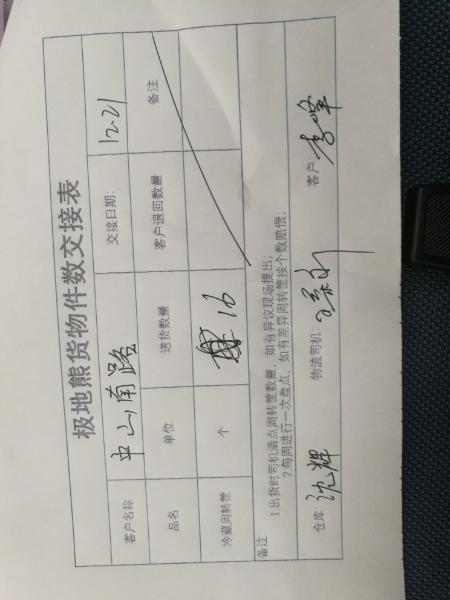 极地熊货物件数交接表
客户名称 中山南路 交接日期: 12-21
品名 单位 送货数量 客户退回数量 备注
冷藏周转筐 个 16
备注: 1出货时司机清点周转筐数量,如有异议现场提出;
2每周进行一次盘点,如有差异周转筐按个数赔偿,
仓库: 沈辉 物流司机: 客户: 李峰